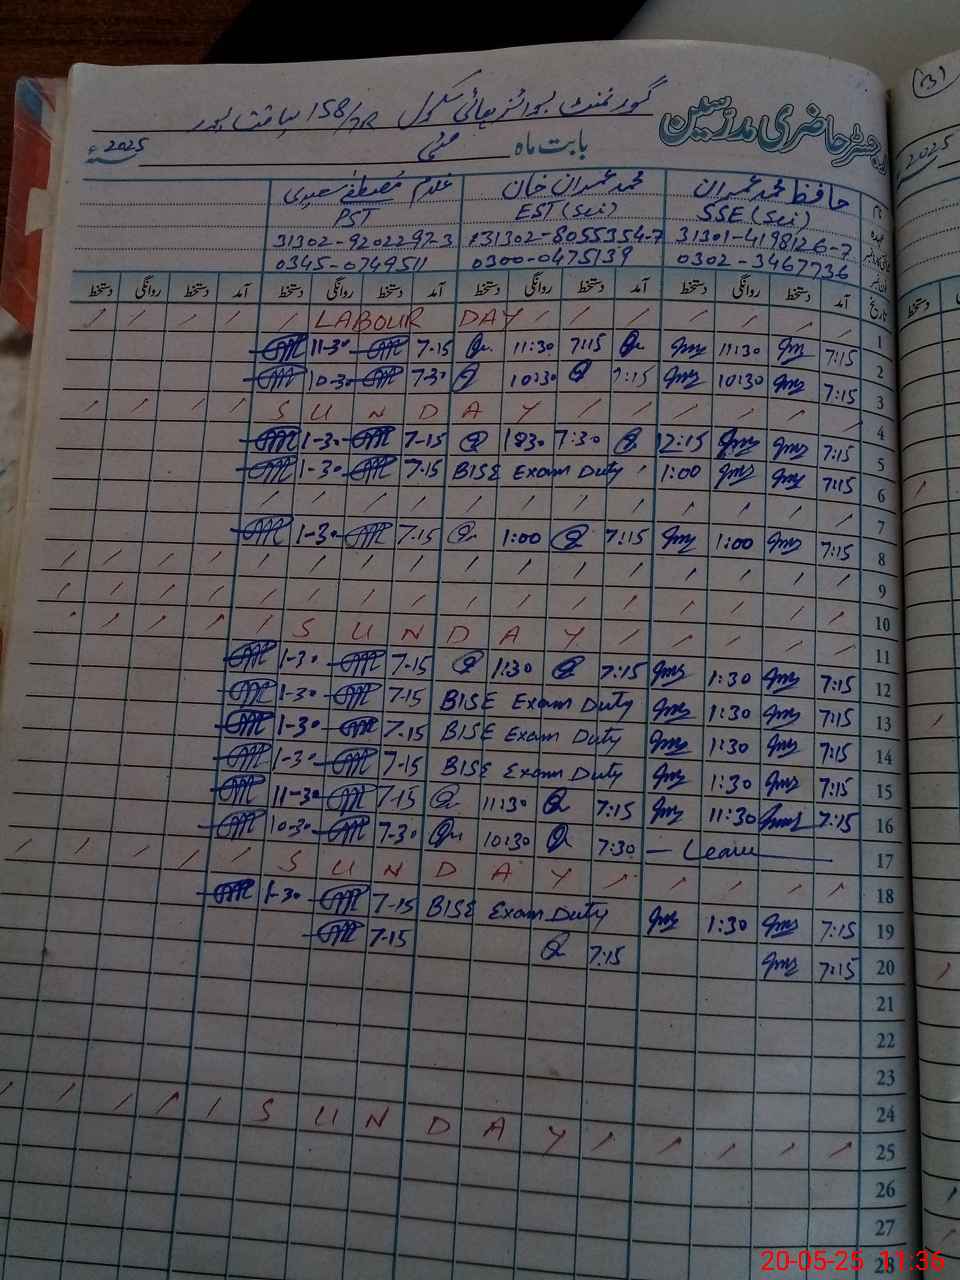 رجسٹر حاضری مدرسین
گورنمنٹ بوائز ہائی سکول 158/7R
بابت ماہ مئی 2025ء
حافظ محمد عمران محمد عمران خان غلام مصطفیٰ سعیدی
SSE (Sci) EST (Sci) PST
31301-4198126-7 31302-8055354-7 31302-9202297-3
0302-3467736 0300-0475139 0345-0749511
تاریخ آمد دستخط روانگی دستخط آمد دستخط روانگی دستخط آمد دستخط روانگی دستخط آمد دستخط روانگی دستخط
1 LABOUR DAY
2 7:15 11:30 7:15 11:30 7-15 11-30
3 7:15 10:30 7:15 10:30 7-30 10-30
4 SUNDAY
5 7:15 12:15 7:30 7-15 1-30
6 7:15 1:00 BISE Exam Duty 7-15 1-30
7
8 7:15 1:00 7:15 1:00 7-15 1-30
9
10
11 SUNDAY
12 7:15 1:30 7:15 1:30 7-15 1-30
13 7:15 1:30 BISE Exam Duty 7-15 1-30
14 7:15 1:30 BISE Exam Duty 7-15 1-30
15 7:15 1:30 BISE Exam Duty 7-15 1-30
16 7:15 11:30 7:15 11:30 7-15 11-30
17 Leave 7:30 10:30 7-30 10-30
18 SUNDAY
19 7:15 1:30 BISE Exam Duty 7-15 1-30
20 7:15 7:15 7-15
21
22
23
24
25 SUNDAY
26
27
28
2025
دستخط
20-05-25 11:36